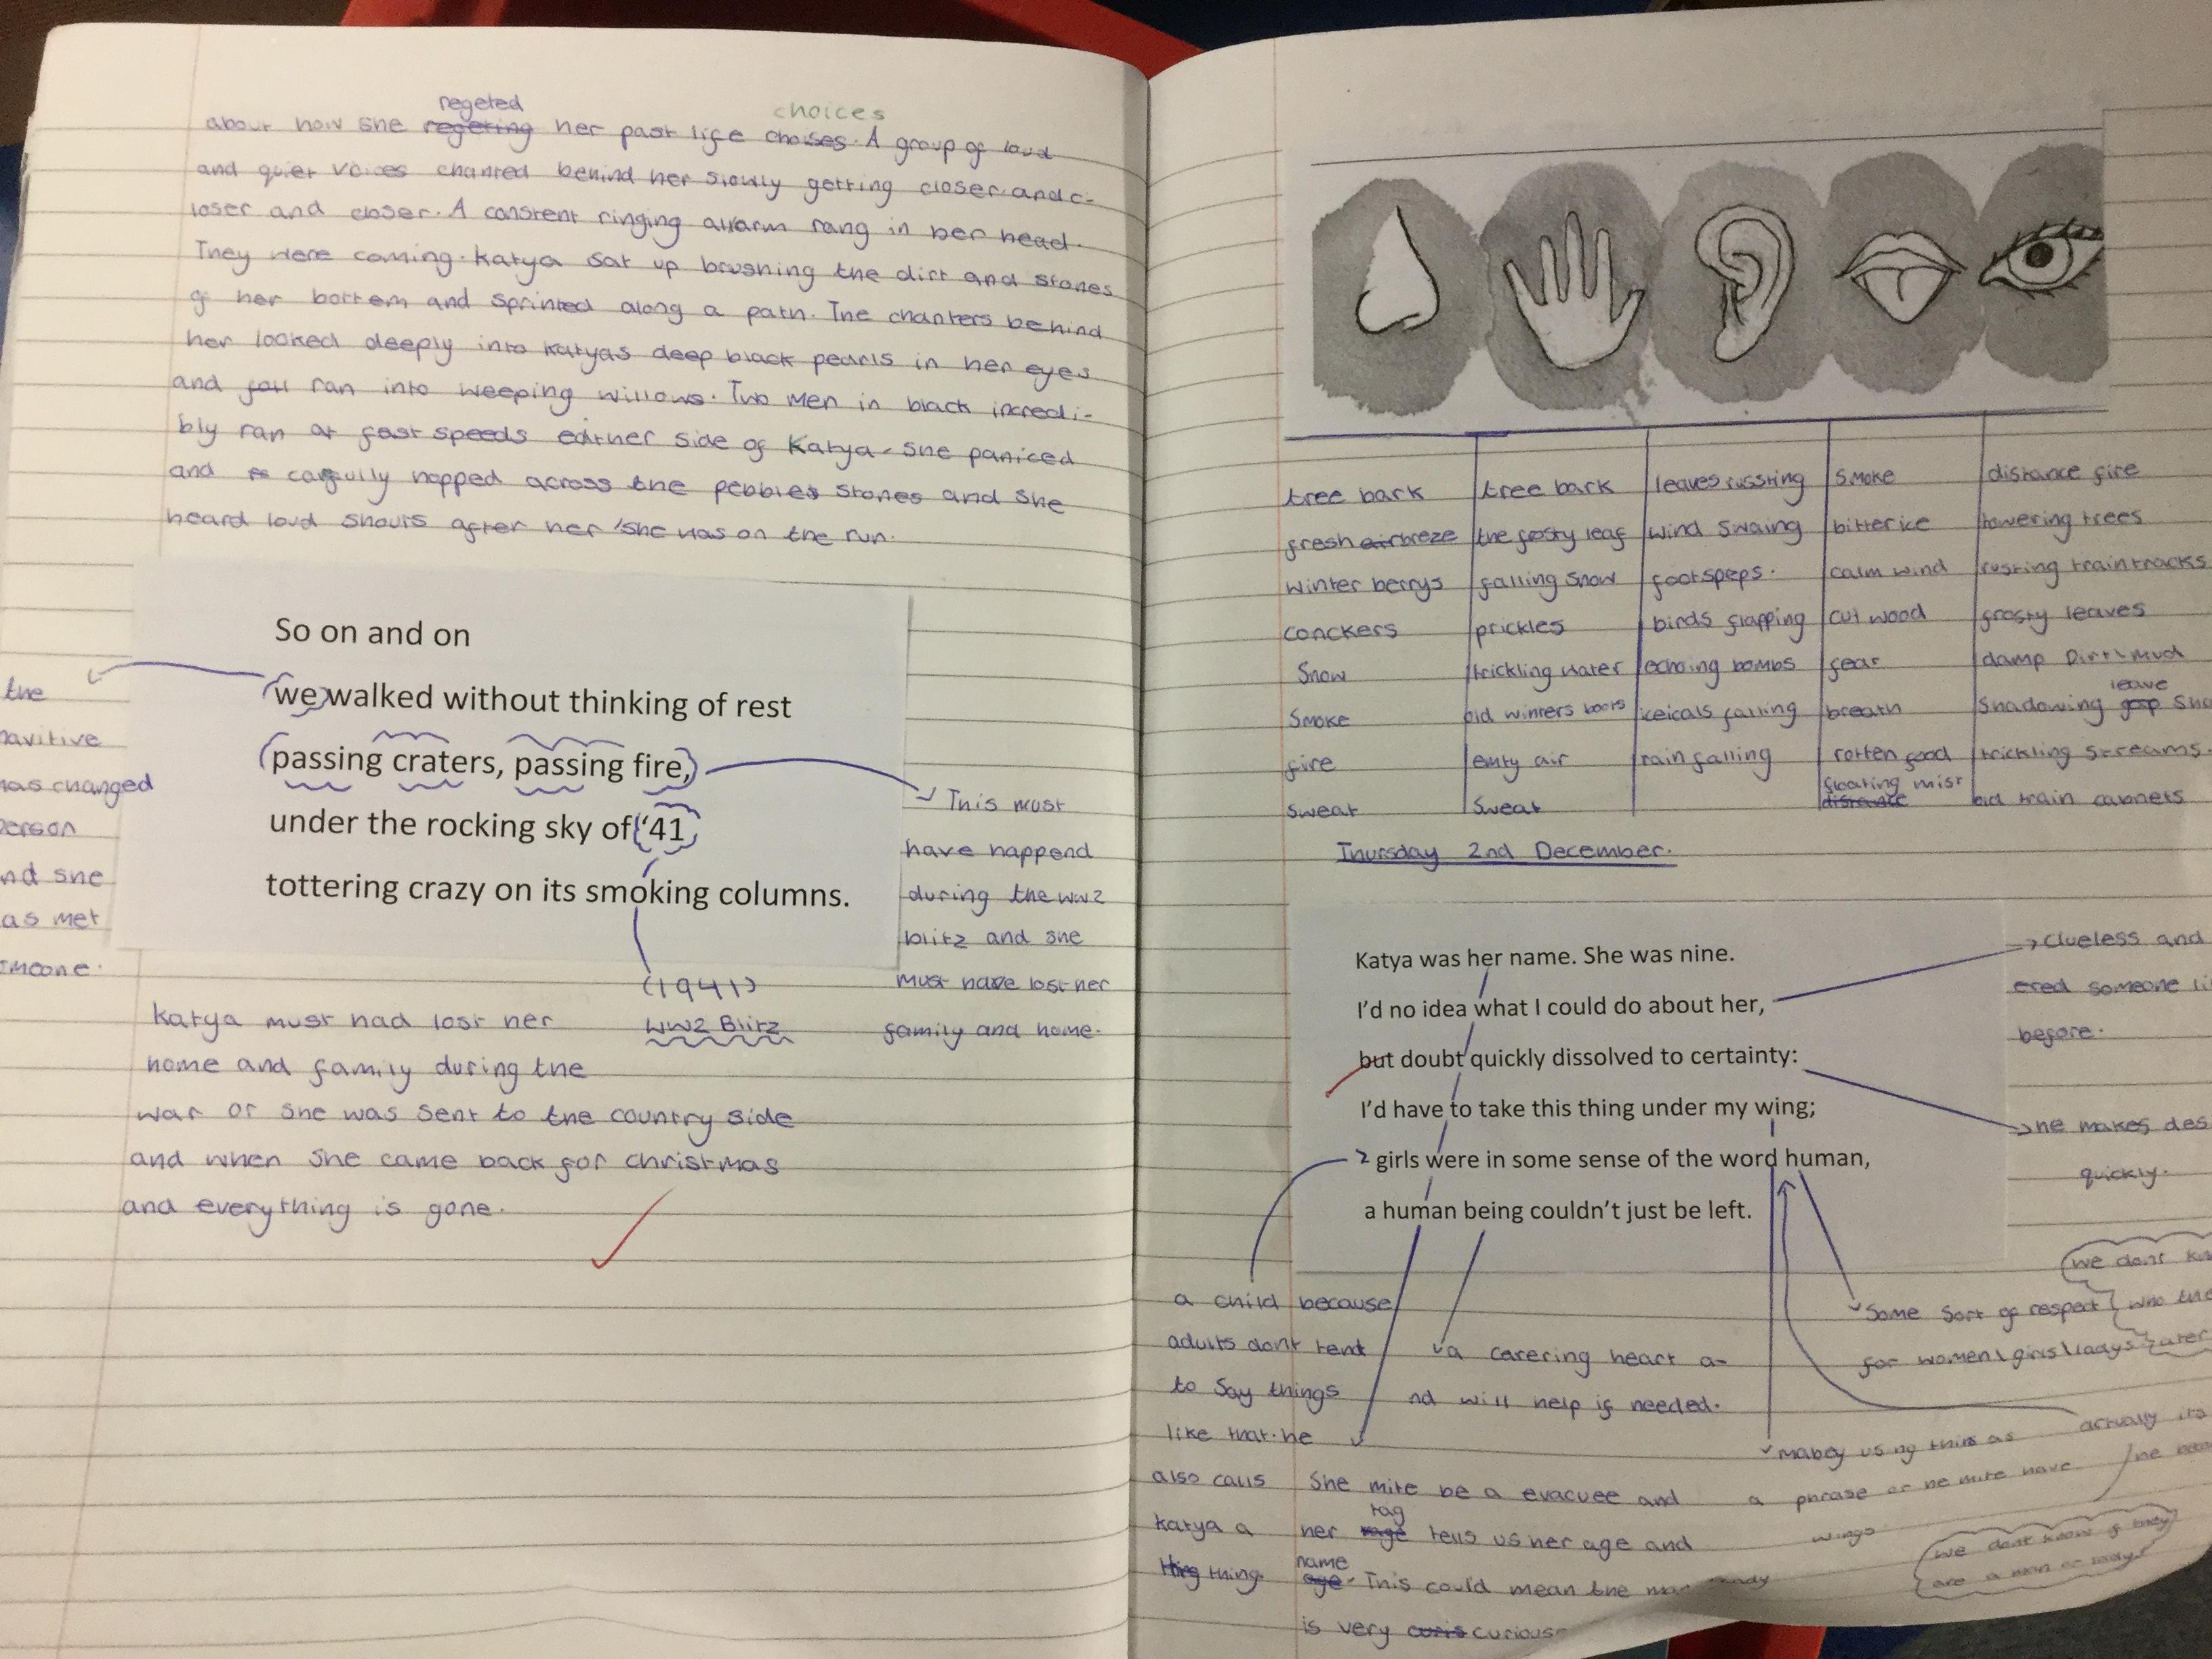 regeted
choices
about how she regeting her past life choises. A group of loud
and quiet voices chanted behind her slowly getting closer and c-
loser and closer. A constent ringing allarm rang in her head.
They were coming. Katya sat up brushing the dirt and stones
of her bottem and sprinted along a path. The chanters behind
her looked deeply into Katyas deep black pearls in her eyes
and ran into weeping willows. Two men in black incredi-
bly ran at fast speeds eather side of Katya. She paniced
and carfully hopped across the pebbles stones and she
heard loud shouts after her 'she was on the run.
So on and on
we walked without thinking of rest
passing craters, passing fire,
under the rocking sky of '41
tottering crazy on its smoking columns.
the
has changed
person
and she
as met
This must
have happend
during the ww2
blitz and she
must have lost her
family and home.
(1941)
WW2 Blitz
Katya must had lost her
home and family during the
war or she was sent to the country side
and when she came back for christmas
and everything is gone.
tree bark | tree bark | leaves russting | smoke | distance fire
fresh air breze | the frosty leaf | wind swaing | bitter ice | towering trees
winter berrys | falling snow | footspeps. | calm wind | rusting train tracks
conckers | prickles | birds flapping | cut wood | frosty leaves
Snow | trickling water | echoing bombs | fear | damp Dirt\Mud
leave
Smoke | old winters boots | iceicals falling | breath | Shadowing
fire | emty air | rain falling | rotten food | trickling streams.
floating mist
sweat | Sweat | distance | old train cabnets
Thursday 2nd December.
Katya was her name. She was nine.
I'd no idea what I could do about her,
but doubt quickly dissolved to certainty:
I'd have to take this thing under my wing;
girls were in some sense of the word human,
a human being couldn't just be left.
Clueless and
someone
before.
he makes des
quickly.
a child because
adults dont tend
to say things
like that. he
also calls
katya a
thing thing.
a carering heart a-
nd will help if needed.
She mite be a evacuee and
tag
her tells us her age and
name
age. This could mean the
is very curiouse
Some sort of respect
for women\girls\ladys
we dont
who the
mabey using this as
a phrase or he mite have
wings
actually its
he
we dont know if they
are a man or lady